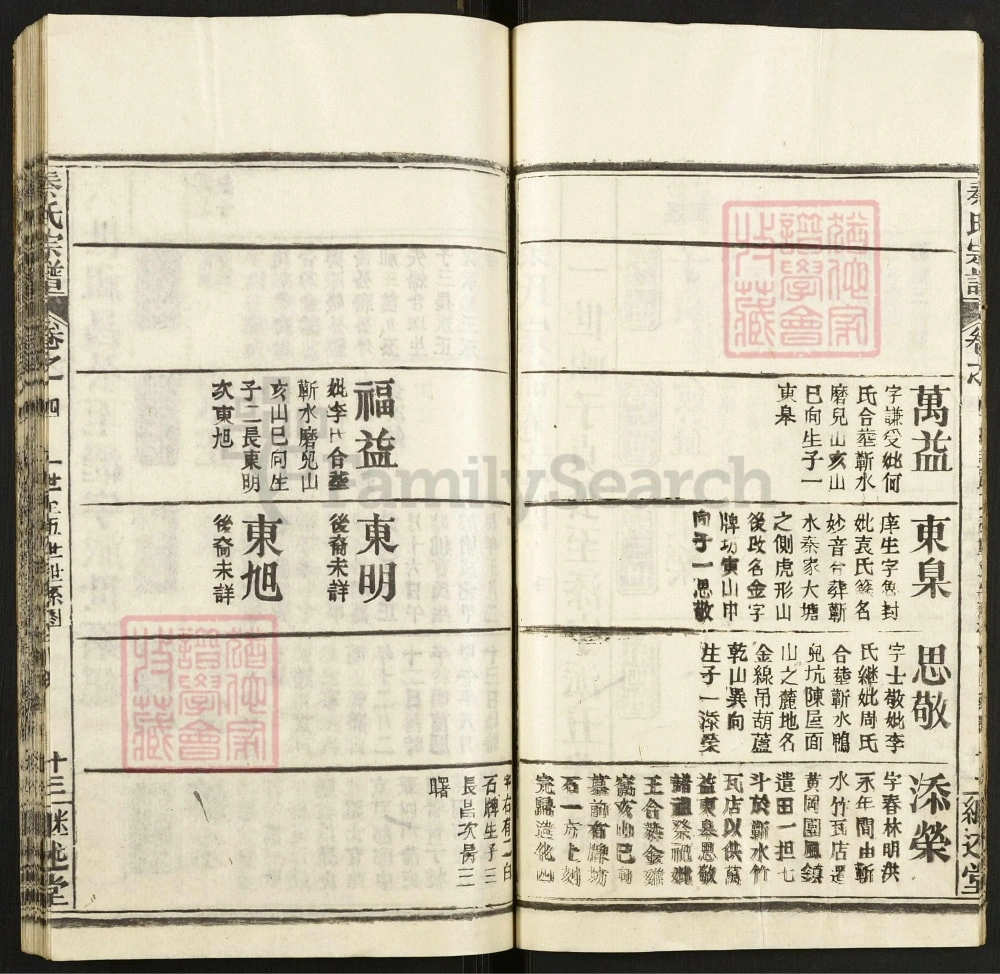 秦氏宗譜
卷之
萬益
字謙受妣何
氏合葬蘄水
磨兒山亥山
巳向生子一
東臯
東臯
庠生字魯封
妣袁氏篆名
妙音合葬蘄
水秦家大塘
之側虎形山
後改名金字
牌坊寅山申
向子一思敬
思敬
字士敬妣李
氏繼妣周氏
合葬蘄水鴨
兒坑陳屋面
山之麓地名
金線吊葫蘆
乾山巽向
生子一添榮
添榮
字春林明洪
永年間由蘄
水竹瓦店遷
黄岡團風鎮
遺田一担七
斗於蘄竹
瓦店以供萬
益東臯思敬
諸祖祭祀妣
王合葬金雞
窩亥山巳向
墓前有牌坊
石一方上刻
完歸造化四
字右有二白
石牌生子三
長昌次勝三
曙
福益
妣李氏合葬
蘄水磨兒山
亥山巳向生
子二長東明
次東旭
東明
後裔未詳
東旭
後裔未詳
秦氏宗譜
卷之一
四
一世至五世世系圖
十三
継述堂
遺他家
譜學會
收藏
FamilySearch